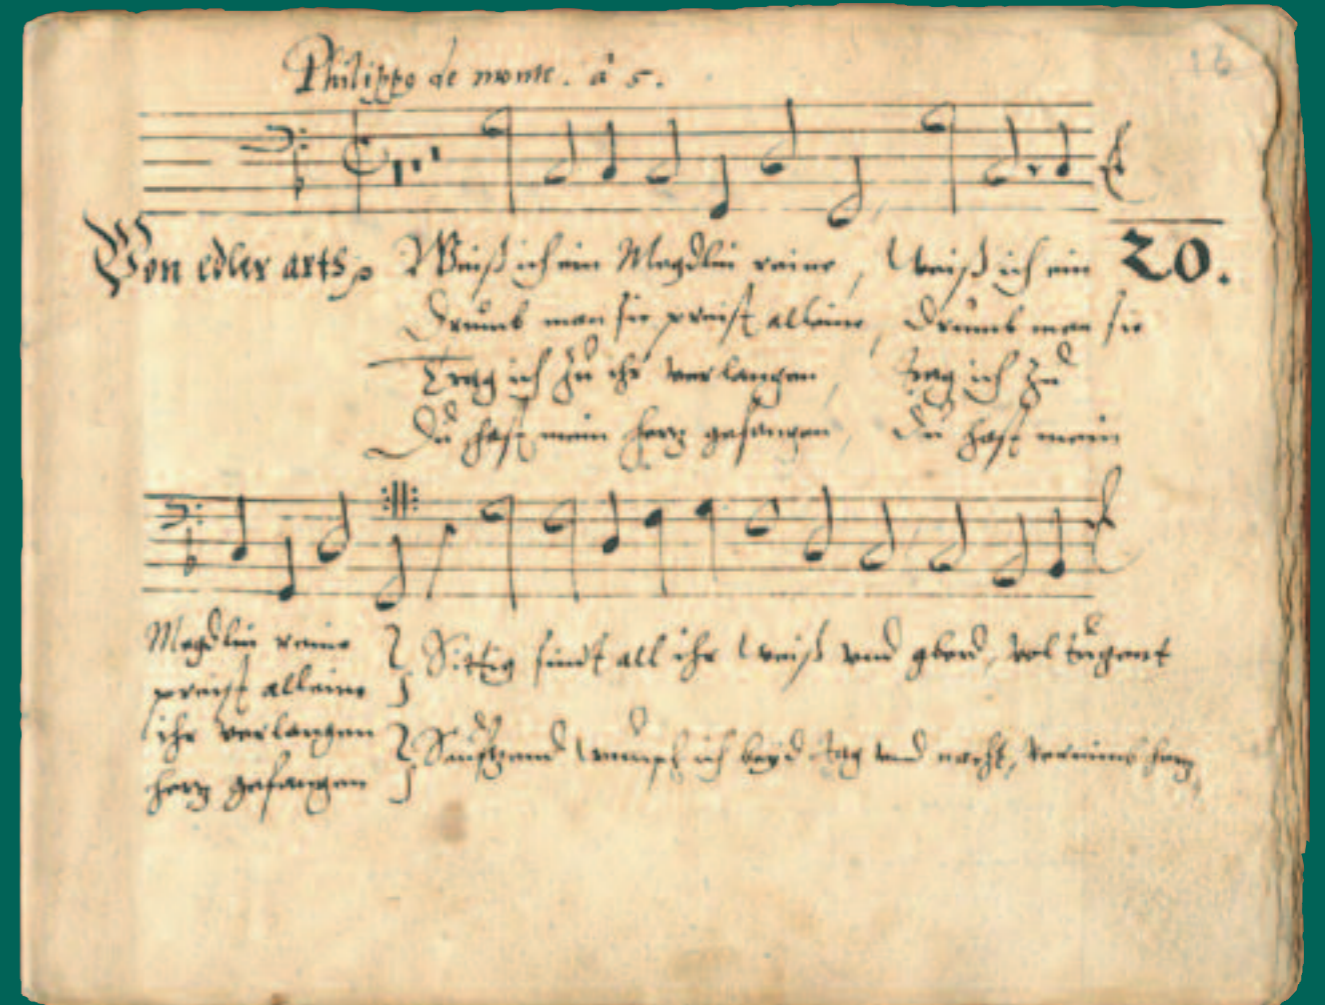 Philippo de monte. â 5.
16
Von edler arts Weiß ich ein Magdlin reine, Weiß ich ein 20.
Drumb man sie preist alleine, Drumb man sie
Trag ich zu ihr verlangen, trag ich zu
Du hast mein herz gefangen, Du hast mein
Magdlin reine Sittig sindt all ihr weiß und gberd, vol tugent
preist alleine
ihr verlangen Seuftzend wunsch ich beyd tag und nacht,
herz gefangen